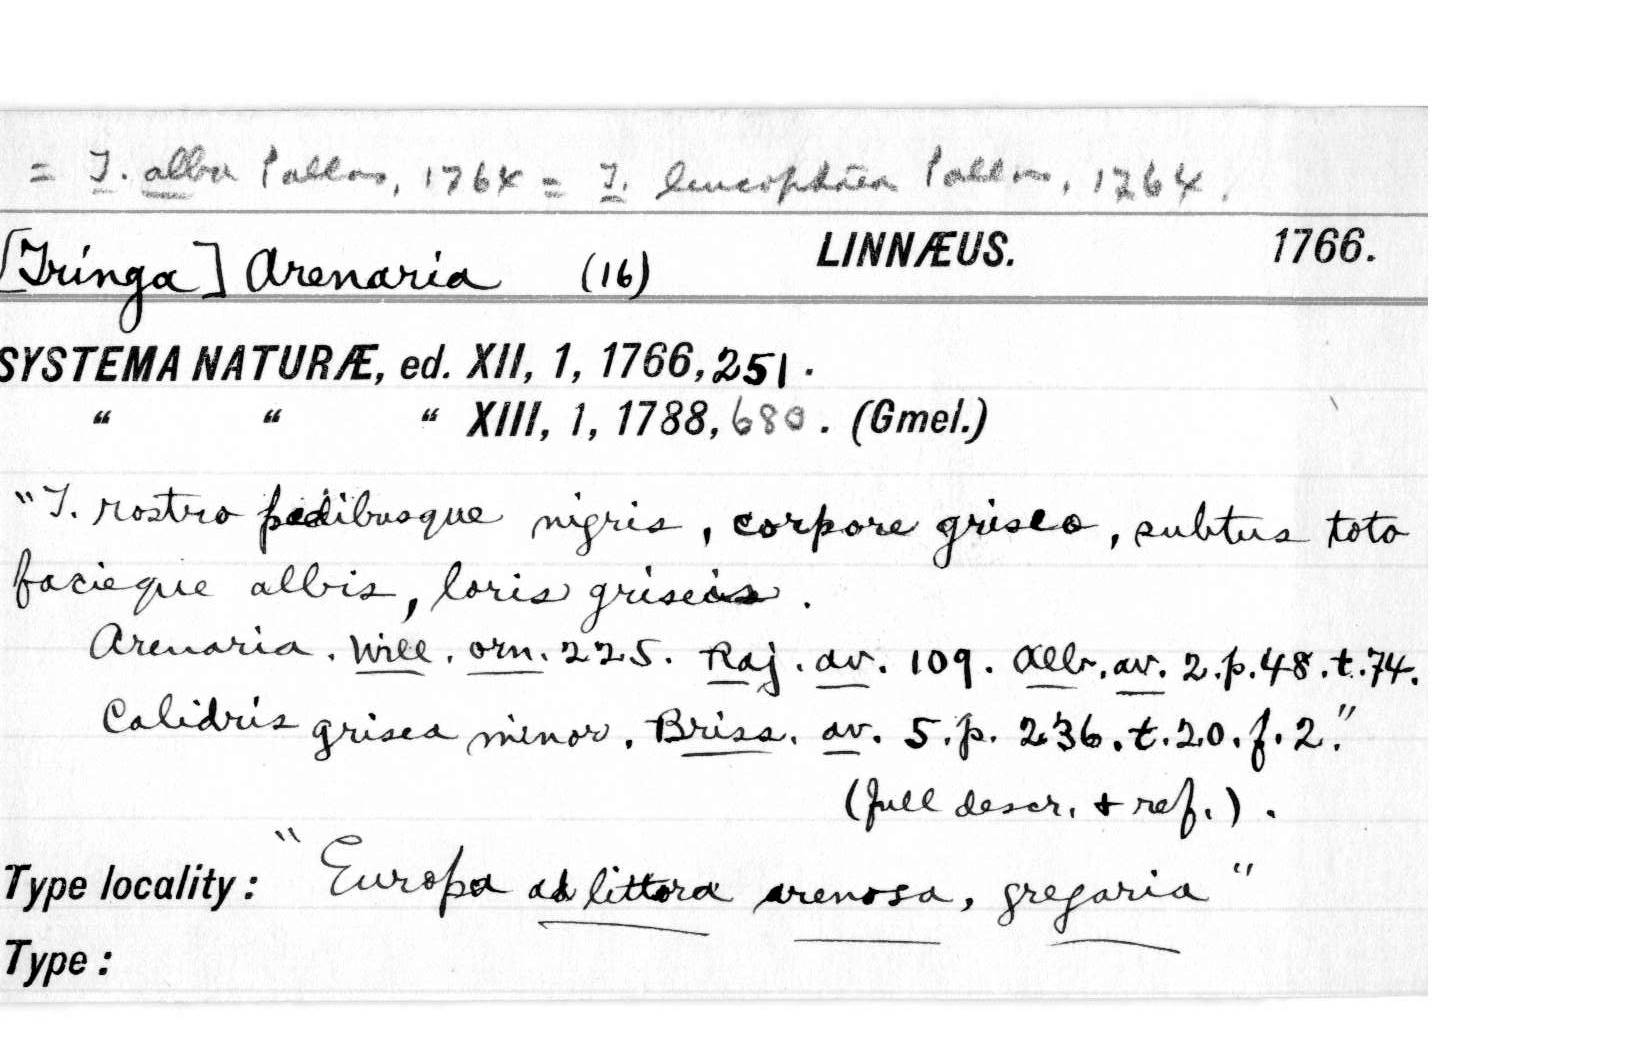 = T. alba Pallas, 1764 = T. leucophaea Pallas, 1764.
[Tringa] Arenaria (16) LINNÆUS. 1766.
SYSTEMA NATURÆ, ed. XII, 1, 1766, 251.
" " " XIII, 1, 1788, 680. (Gmel.)
"T. rostro pedibusque nigris, corpore griseo, subtus toto
facieque albis, loris griseis.
Arenaria. Will. orn. 225. Raj. av. 109. Alb. av. 2. p. 48. t. 74.
Calidris grisea minor. Briss. av. 5. p. 236. t. 20. f. 2."
(full descr. + ref.).
Type locality: "Europa ad littora arenosa, gregaria"
Type: